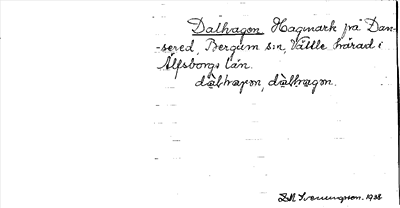 Dalhagon Hagmark på Dan-
-sered, Bergum sn, Vättle härad i
Älfsborgs län.
dàlhagon, dàlhagon.
1938